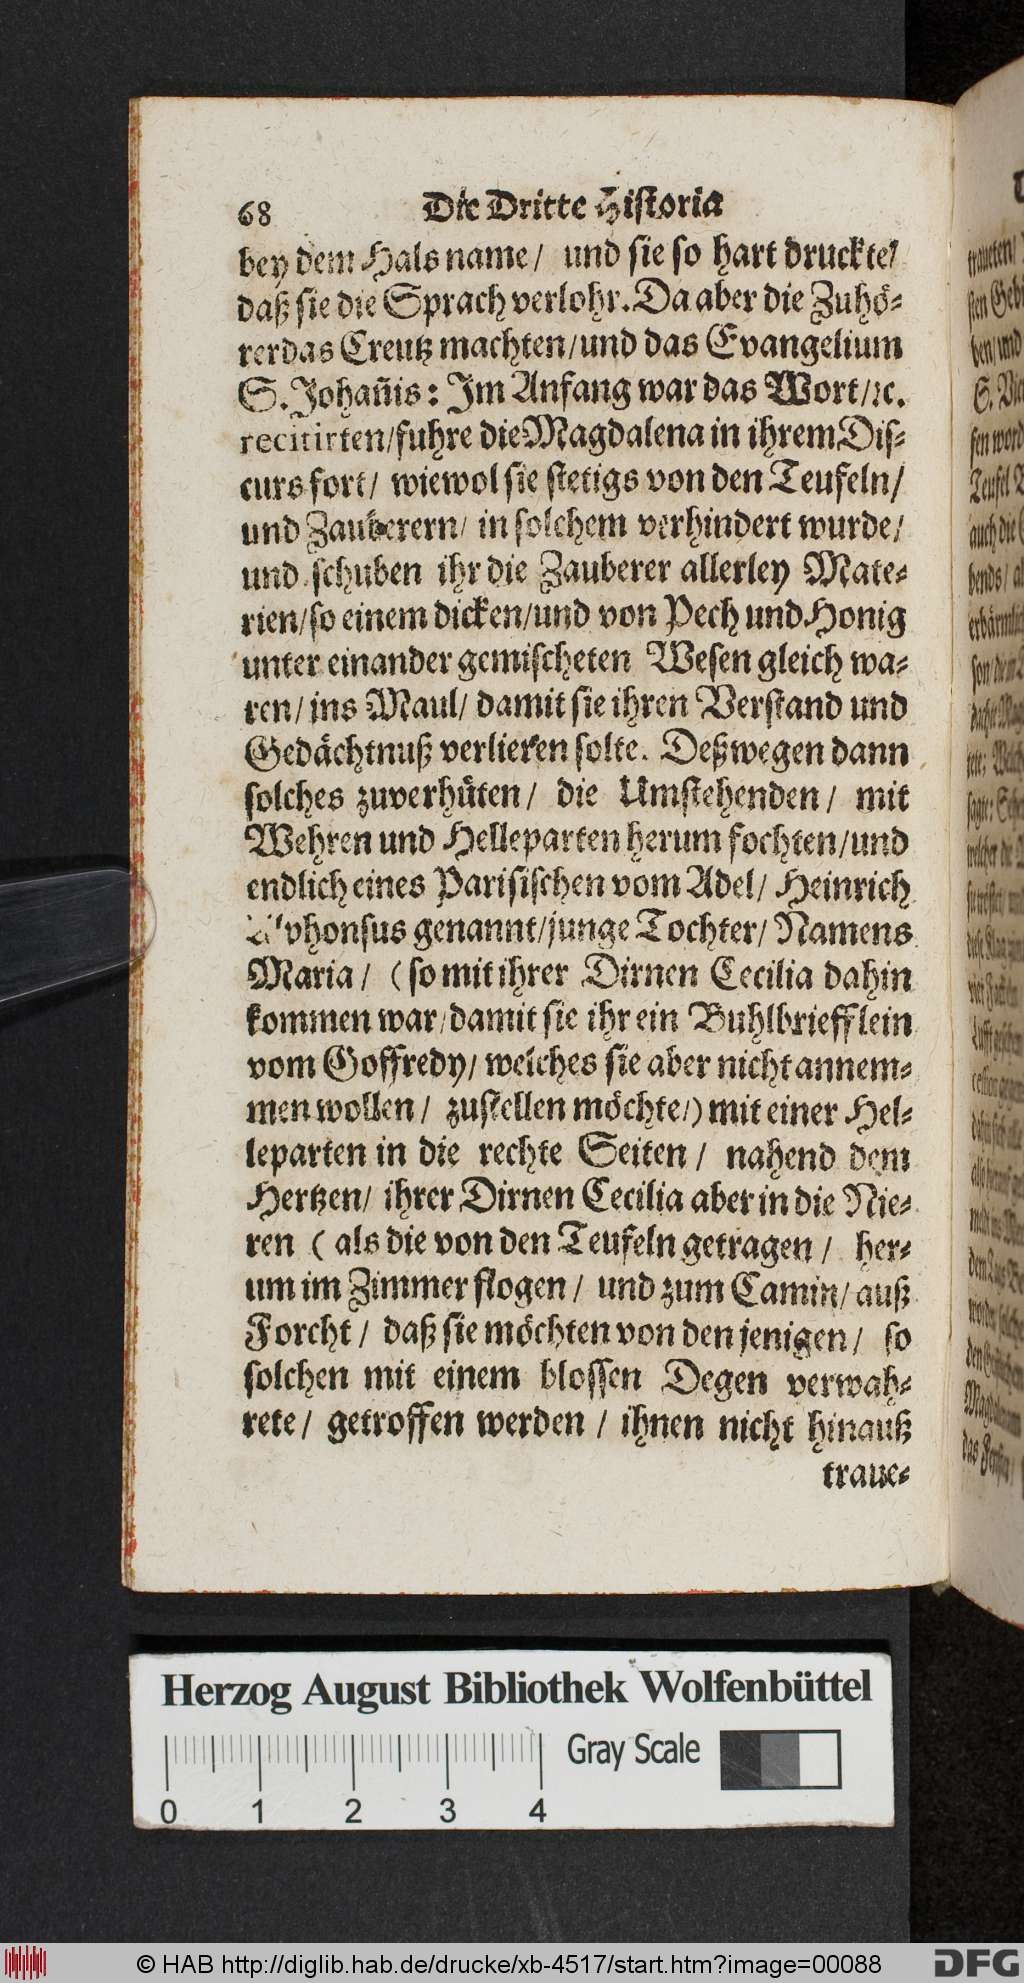 68 Die Dritte Historia
bey dem Hals name / und sie so hart druckte /
daß sie die Sprach verlohr. Da aber die Zuhö-
rer das Creutz machten / und das Evangelium
S. Johan̄is: Im Anfang war das Wort / ꝛc.
recitirten / fuhre die Magdalena in ihrem Dis-
curs fort / wiewol sie stetigs von den Teufeln /
und Zauberern / in solchem verhindert wurde /
und schuben ihr die Zauberer allerley Mate-
rien / so einem dicken / und von Pech und Honig
unter einander gemischeten Wesen gleich wa-
ren / ins Maul / damit sie ihren Verstand und
Gedächtnuß verlieren solte. Deßwegen dann
solches zuverhüten / die Umstehenden / mit
Wehren und Helleparten herum fochten / und
endlich eines Parisischen vom Adel / Heinrich
genannt / junge Tochter / Namens
Maria / ( so mit ihrer Dirnen Cecilia dahin
kommen war / damit sie ihr ein Buhlbriefflein
vom Goffredy / welches sie aber nicht annem-
men wollen / zustellen möchte / ) mit einer Hel-
leparten in die rechte Seiten / nahend dem
Hertzen / ihrer Dirnen Cecilia aber in die Nie-
ren ( als die von den Teufeln getragen / her-
um im Zimmer flogen / und zum Camin / auß
Forcht / daß sie möchten von den jenigen / so
solchen mit einem blossen Degen verwah-
rete / getroffen werden / ihnen nicht hinauß
traue-
Herzog August Bibliothek Wolfenbüttel
Gray Scale
0 1 2 3 4
© HAB http://diglib.hab.de/drucke/xb-4517/start.htm?image=00088
DFG